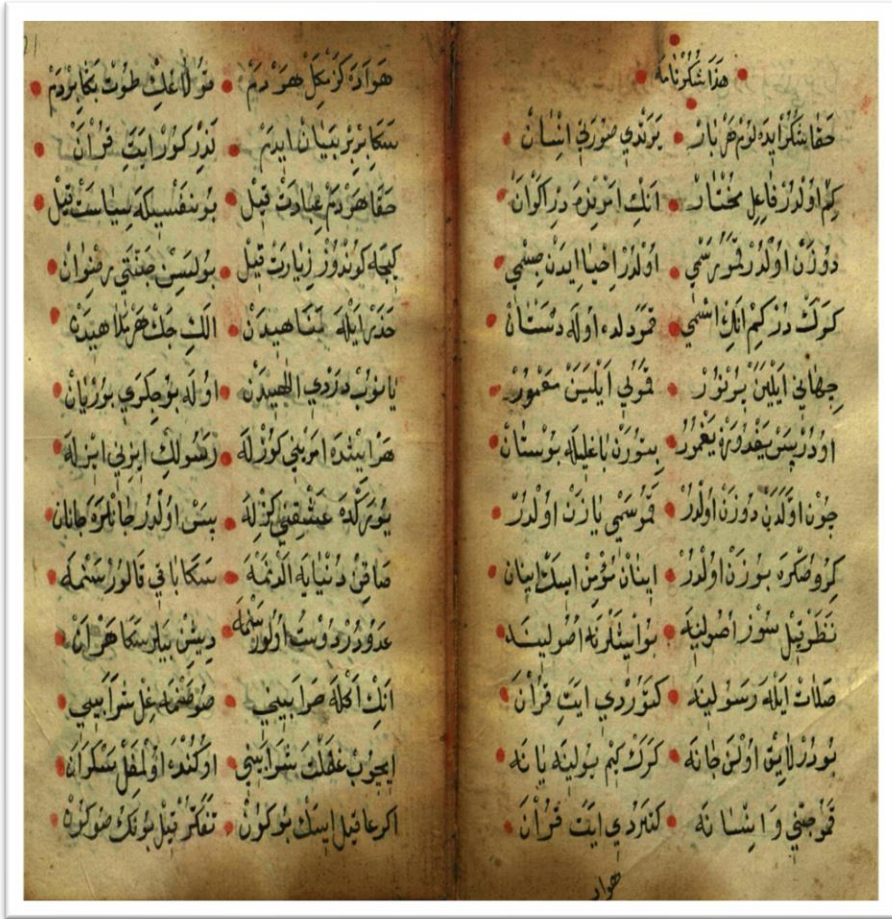 هذا شكرنامه
حقا شكر ايده لوم هر بار • يرتدي صورتي انسان
كم اولدر فاعل مختار • انك امرينده در اكوان
دوزن اولدر قمو رسمي • اولدر احيا ايدن جسمي
كرك در كيم انك اسمي • قمو دلده اوله دستان
جهاني ايلين پرنور • قموي ايلين معمور
اودر پس يغدورن يغمور • بتورن باغيله بوستان
چون اولدن دوزن اولدر • قمو سمي يازن اولدر
كرو صكره بوزن اولدر • اينان مؤمن ايسك اينان
نظر قيل سوز اصولينه • بو ايشلرنه اصولينه
صلات ايله رسولينه • كتوردي ايت قران
بودر لايق اولن جانه • كرك كيم بولينه يانه
قمو جني و انسانه • كتيردي ايت قران
هواد
هواده كزمكل هر دم • قولاغك طوت بكا بر دم
سكا بر بر بيان ايدم • نذر كور ايت قران
حقا هر دم عبادت قيل • بو نفسيكه سياست قيل
كيجه كوندوز زيارت قيل • بولسن جنتي رضوان
حذر ايله مناهيدن • الك چك هر ملاهيدن
يانوب دردي الهيدن • اوله بو جكري بوريان
هر ايشده امريني كوزله • رسولك ايزني ايزله
يورگده عشقني كزله • بس اولدر جانلره جانان
صاقن دنيايه الدنمه • سكا باقي قالور سنمه
عدودر دوست اولور سنمه • ديشن بيلر سكا هر ان
انك اكله خرابيني • صو صنمه غل شرابيني
ايچوب غفلت شرابيني • اوكنده اولمغل سكران
اكر عاقل ايسك بو كون • تفكر قيل بونك صوكون